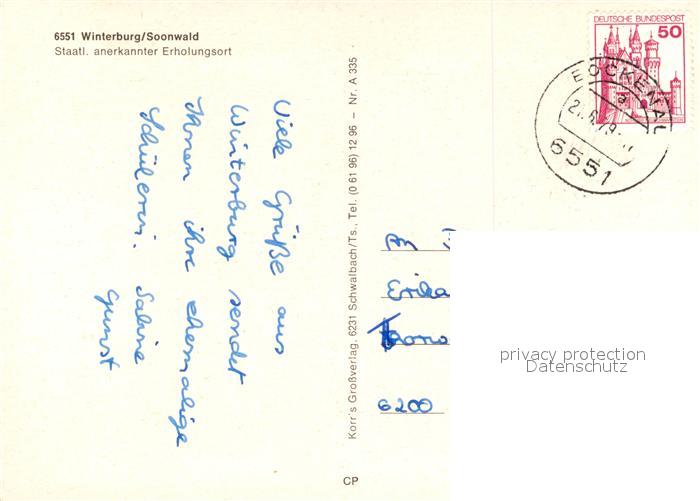 6551 Winterburg/Soonwald
Staatl. anerkannter Erholungsort
Viele Grüße aus
Winterburg sendet
Ihnen ihre ehemalige
Schülerin. Sabine
Gunst
Korr's Großverlag, 6231 Schwalbach/Ts., Tel. (0 61 96) 12 96 – Nr. A 335
CP
DEUTSCHE BUNDESPOST
50
BOCKENAU
a
6551
An
Erika
6200
privacy protection
Datenschutz